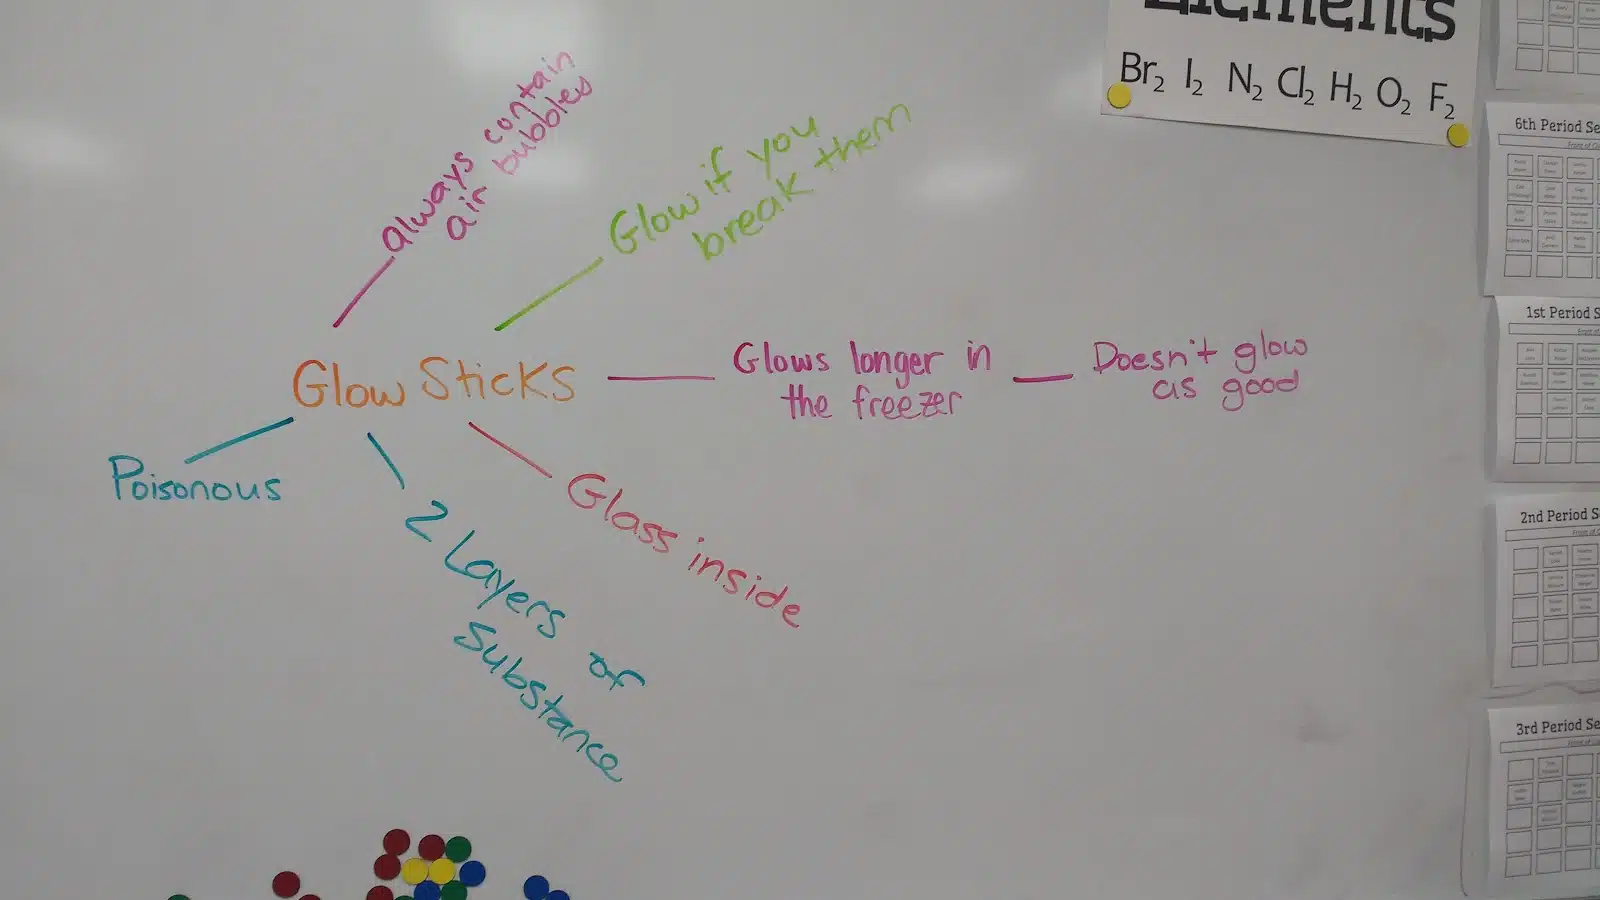 Elements
Br2 I2 N2 Cl2 H2 O2 F2
always contain
air bubbles
Glow if you
break them
Glow Sticks
Glows longer in
the freezer
Doesn't glow
as good
Poisonous
2 Layers of
Substance
Glass inside
6th Period Se
1st Period S
2nd Period S
3rd Period Se